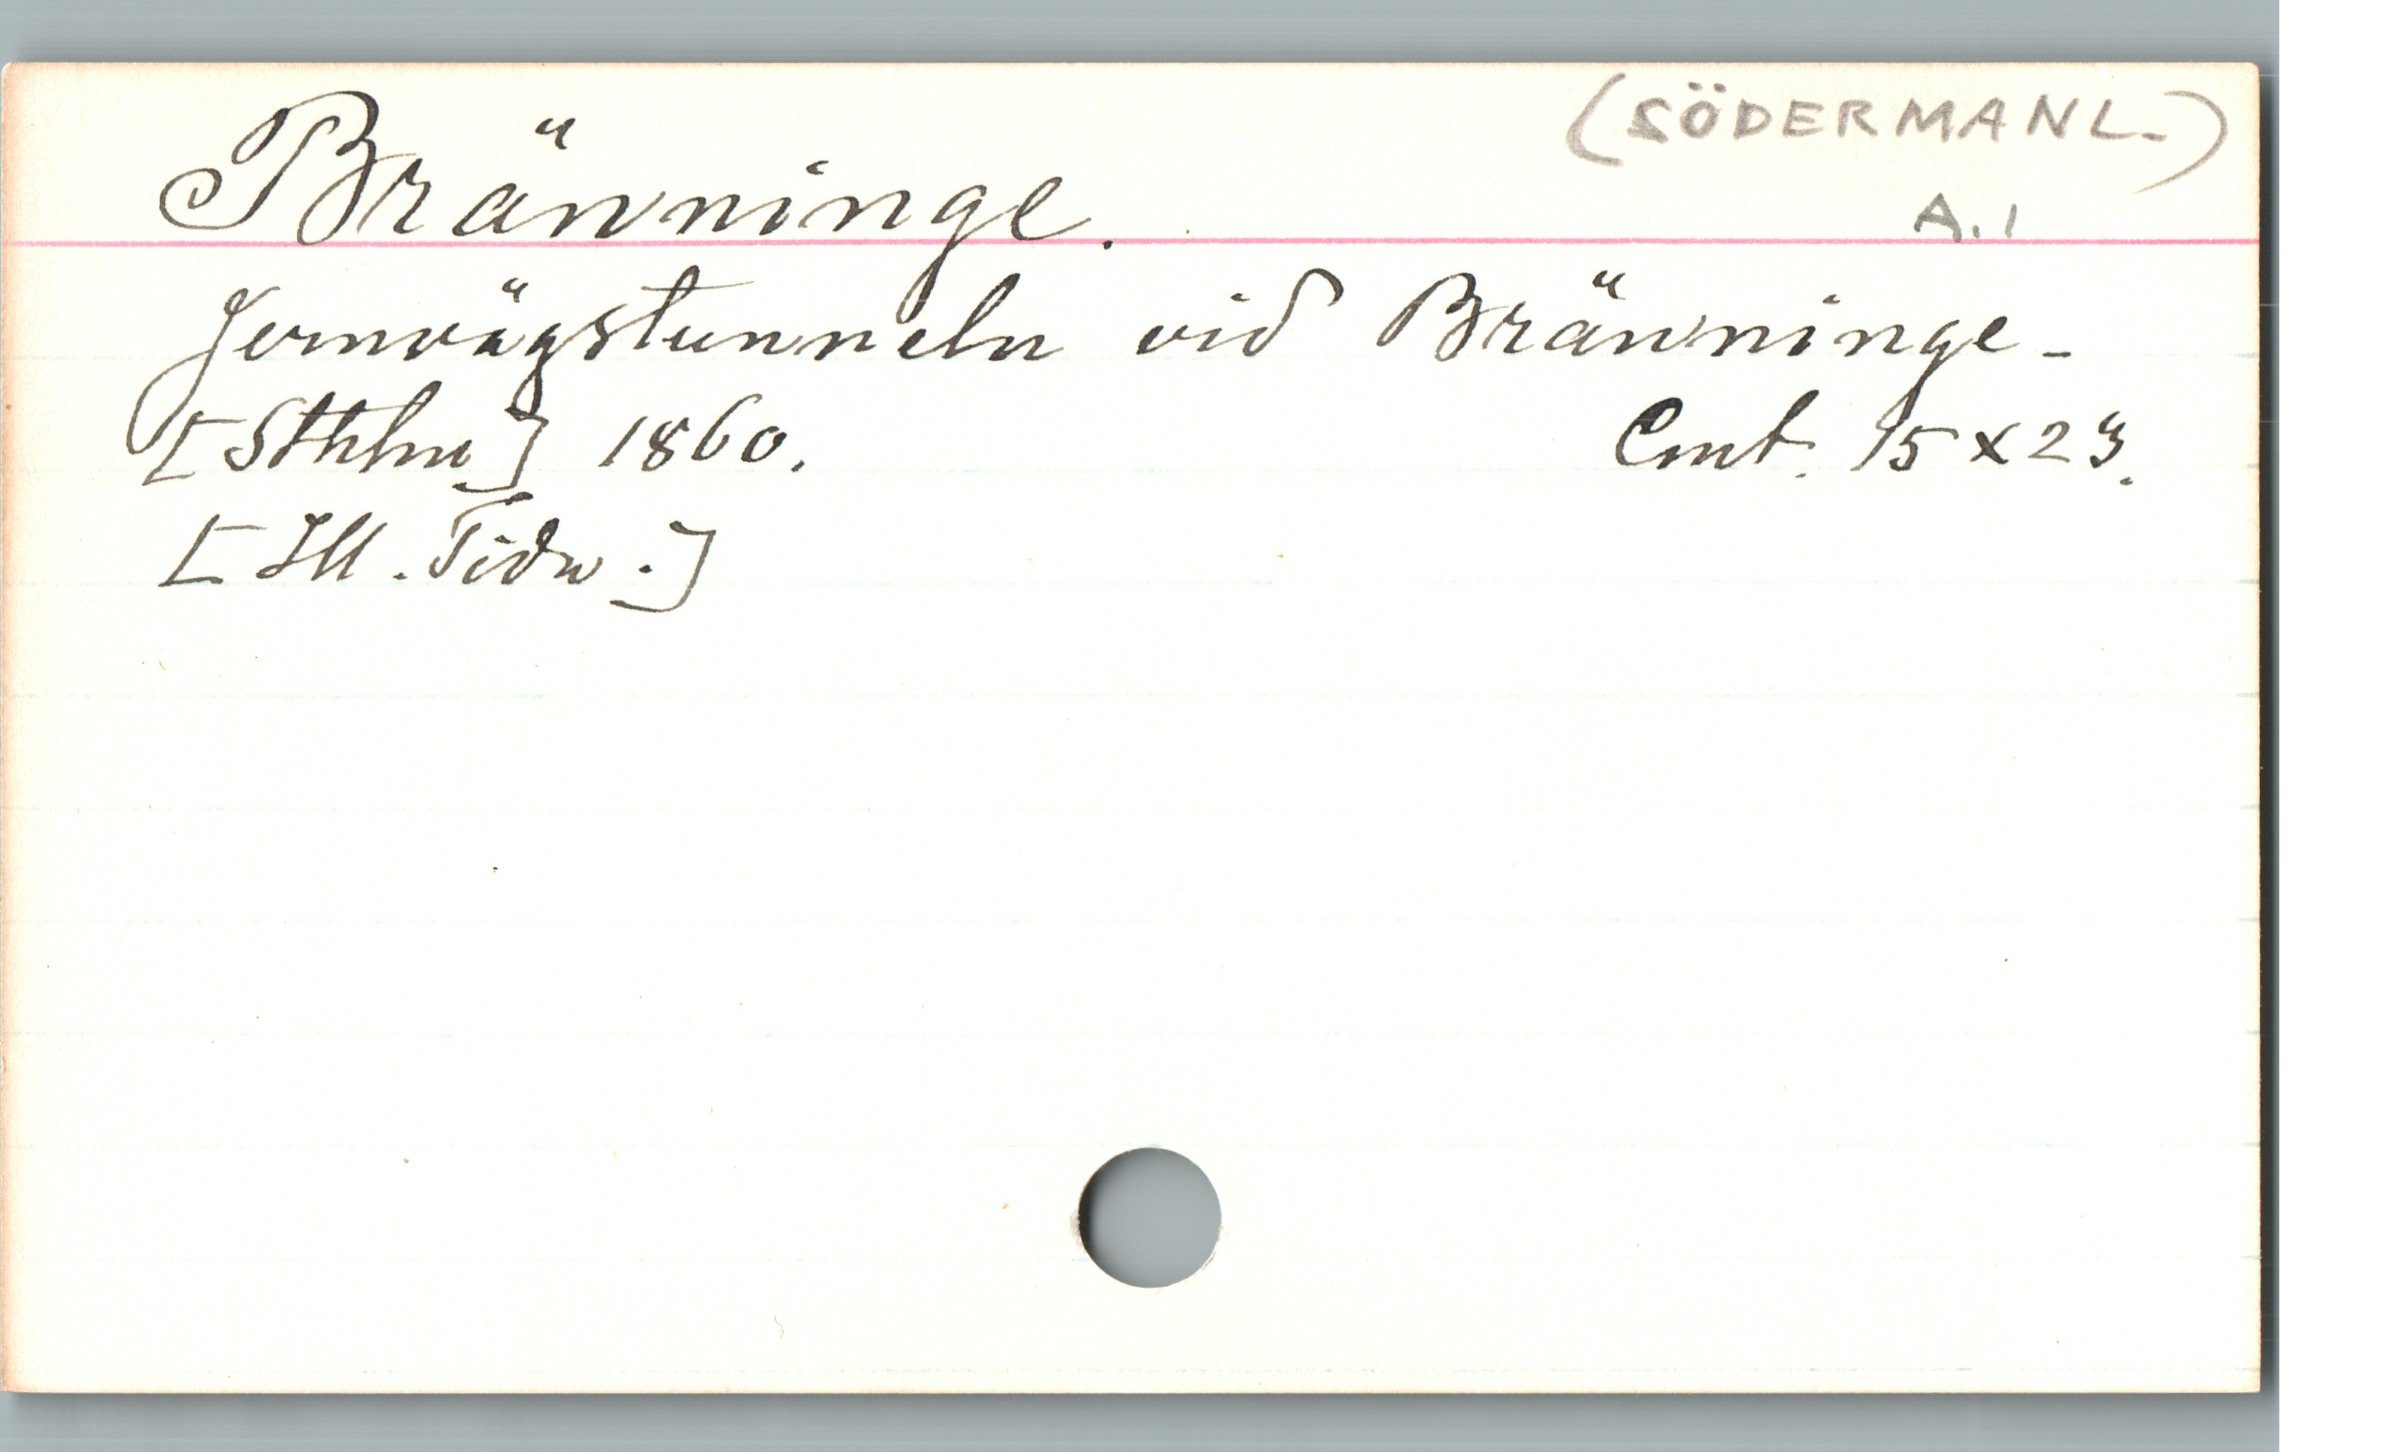 Bränninge.
(SÖDERMANL.)
A.1
Jernvägstunneln vid Bränninge.
[Sthlm] 1860.
Cmt. 15 x 23.
[Ill. Tidn.]